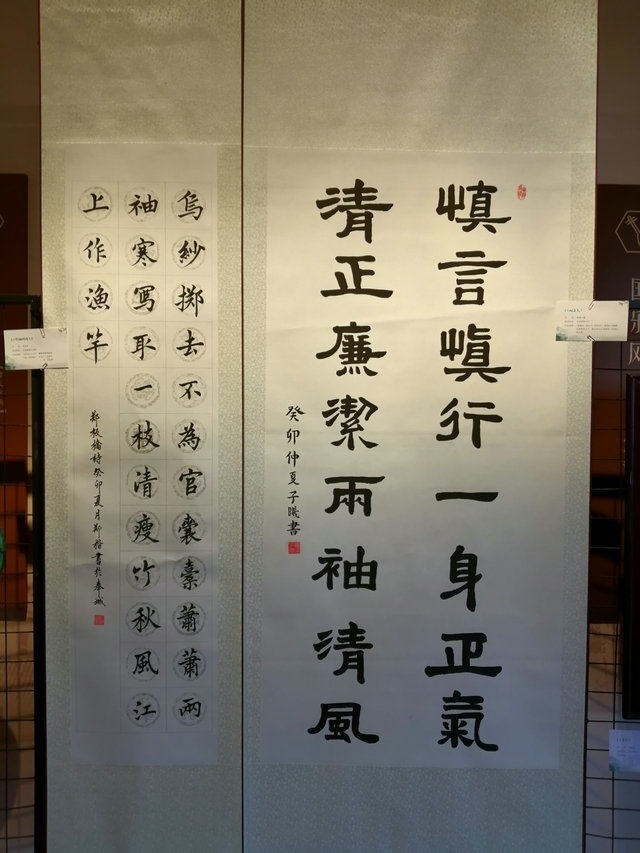 慎言慎行一身正氣
清正廉潔兩袖清風
癸卯仲夏子曦書
烏紗掷去不為官囊橐蕭蕭兩
袖寒寫取一枝清瘦竹秋風江
上作漁竿
鄭板橋詩癸卯夏月鄭楷書於奉城